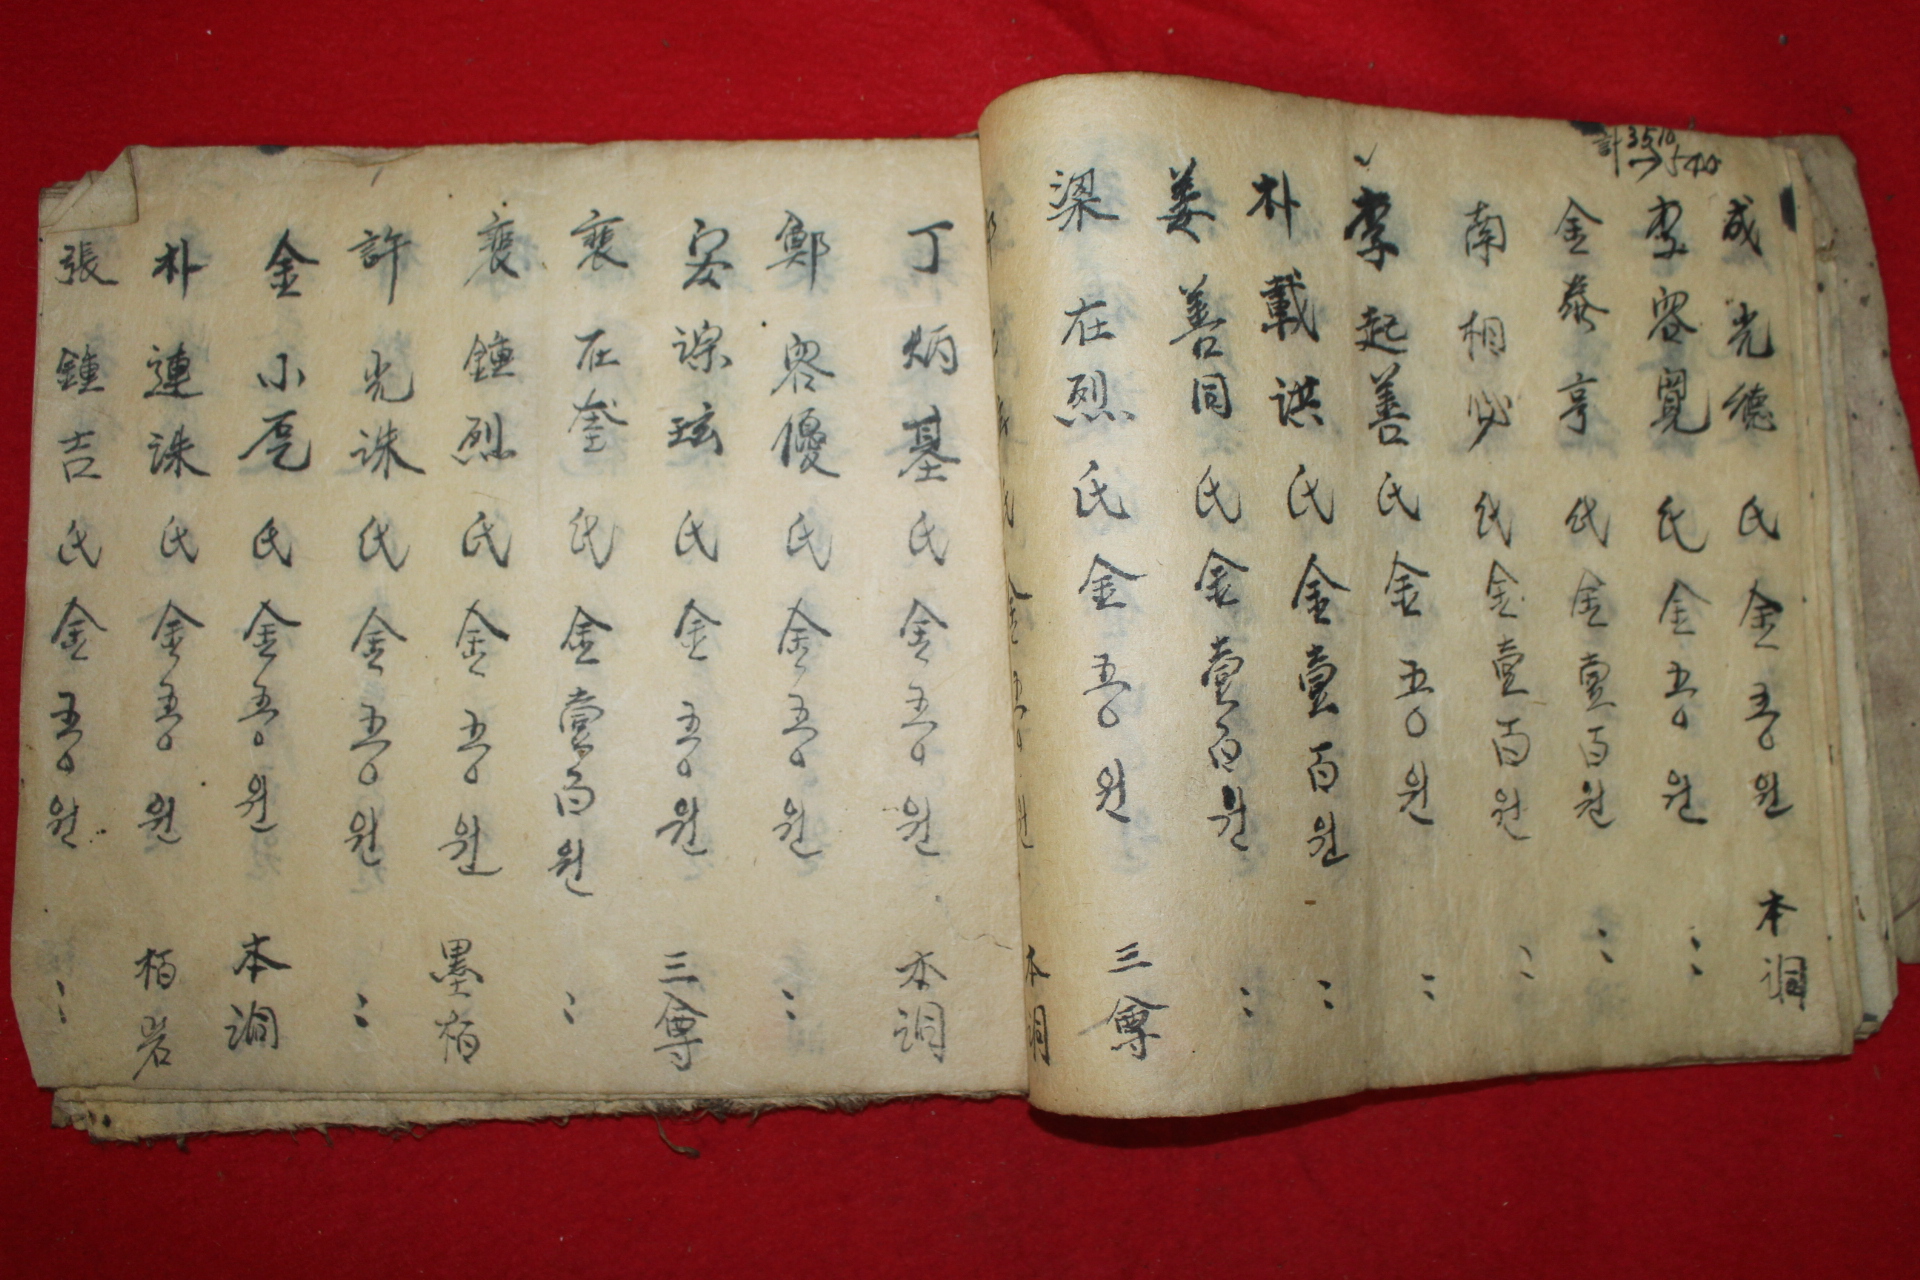 計3510
成光德氏金五〇원 本洞
李容寬氏金五〇원 〻
金泰亨氏金壹百원 〻
南相必氏金壹百원 〻
李起善氏金五〇원 〻
朴載洪氏金壹百원 〻
姜善同氏金壹百원 〻
梁在烈氏金五〇원 三會
丁炳基氏金五〇원 本洞
鄭容優氏金五〇원 〻
安琮玹氏金五〇원 三會
裵在奎氏金壹百원 〻
裵鍾烈氏金五〇원 墨栢
許光洙氏金五〇원 〻
金小 氏金五〇원 本洞
朴連洙氏金五〇원 栢岩
張鍾吉氏金五〇원 〻